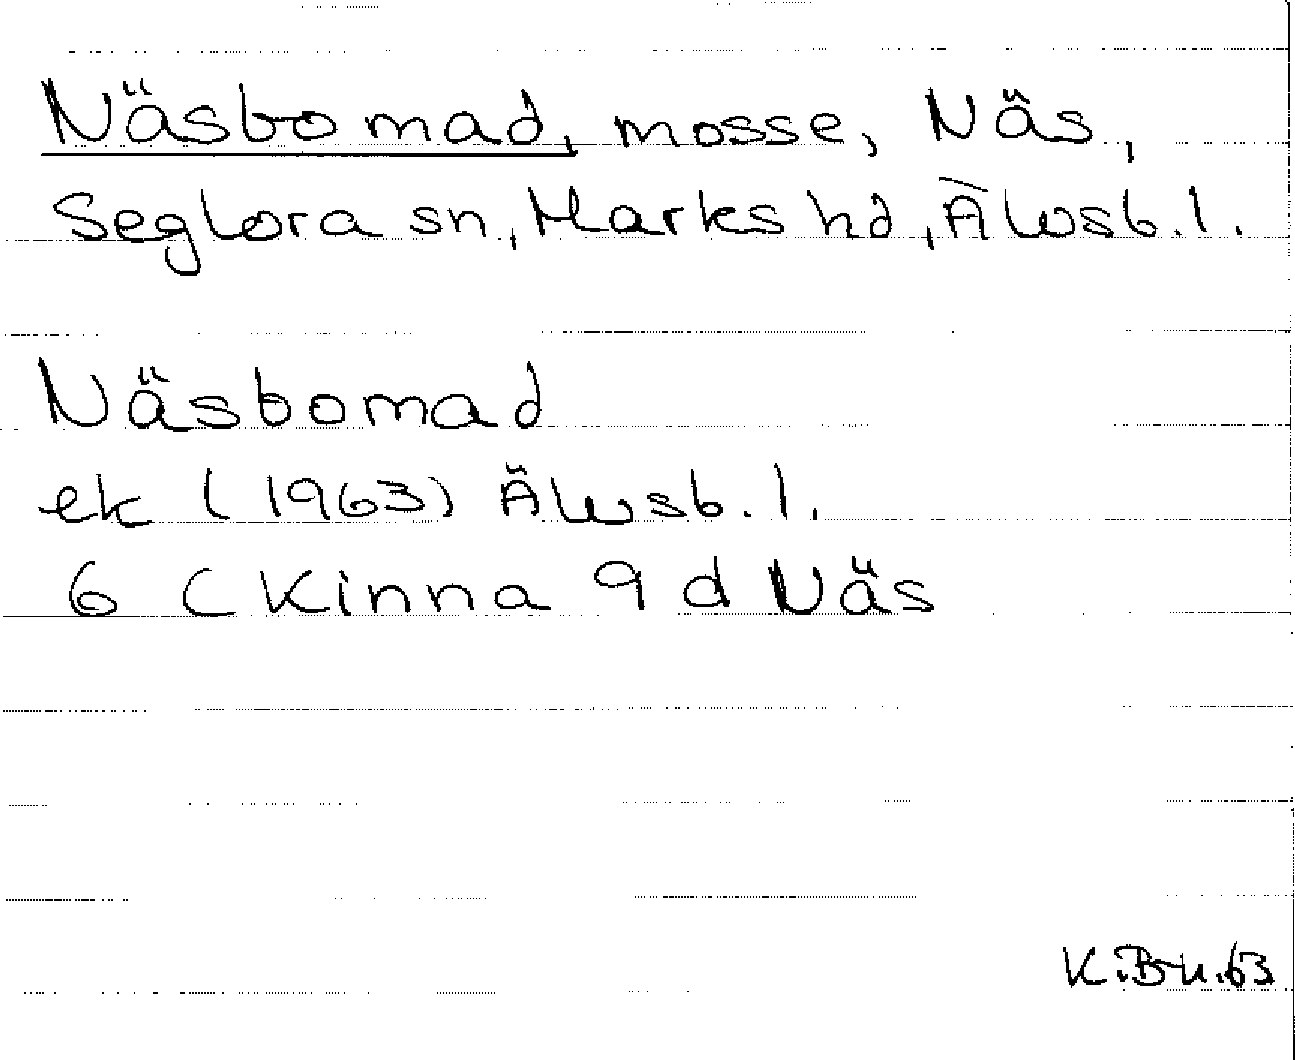 Näsbomad, mosse, Näs,
Seglora sn, Marks hd, Älvsb. l.
Näsbomad
ek (1963) Älvsb. l.
6 C Kinna 9 d Näs
K.B-n.63